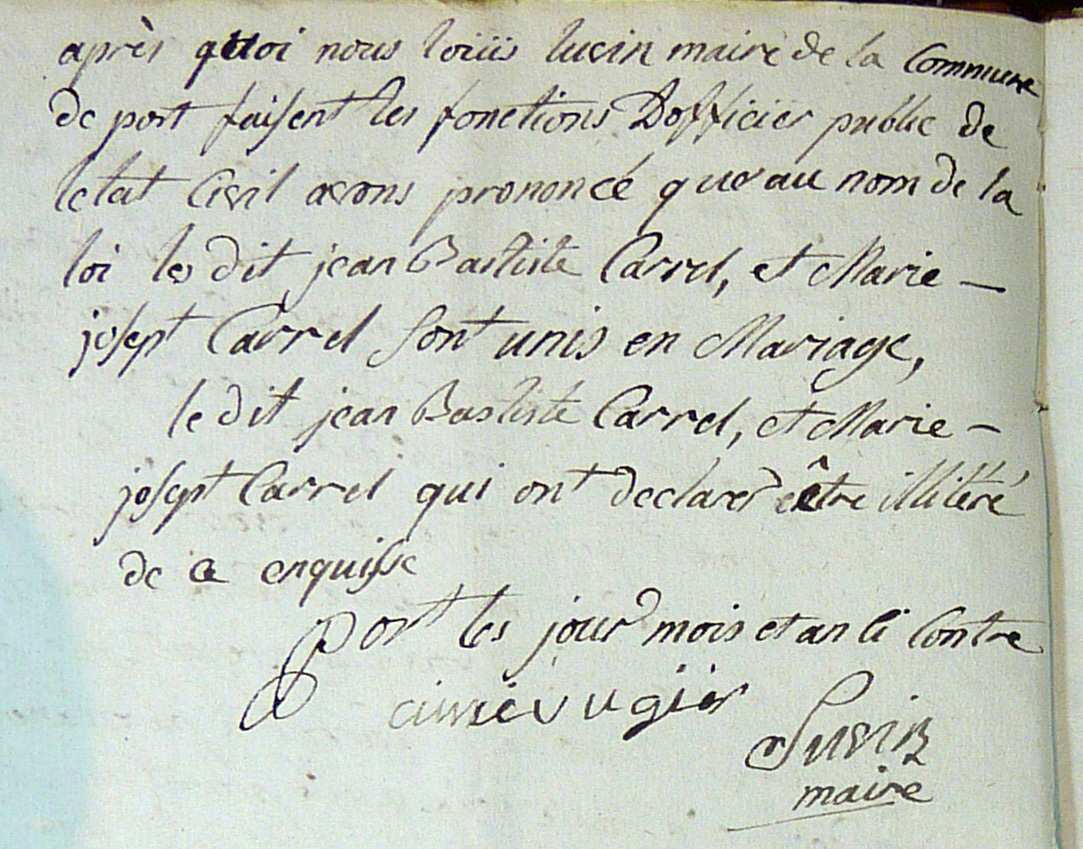 après quoi nous loüis luvin maire de la Commune
de port faisent les fonctions Dofficier public de
letat Civil avons prononcé que au nom de la
loi le dit jean Bastiste Carrel, et Marie –
josept Carrel sont unis en Mariage,
le dit jean Bastiste Carrel, et Marie –
josept Carrel qui ont declarer être illiteré
de ce enquisse
port les jour mois et an ci Contre
aimé vugier
Luvin
maire